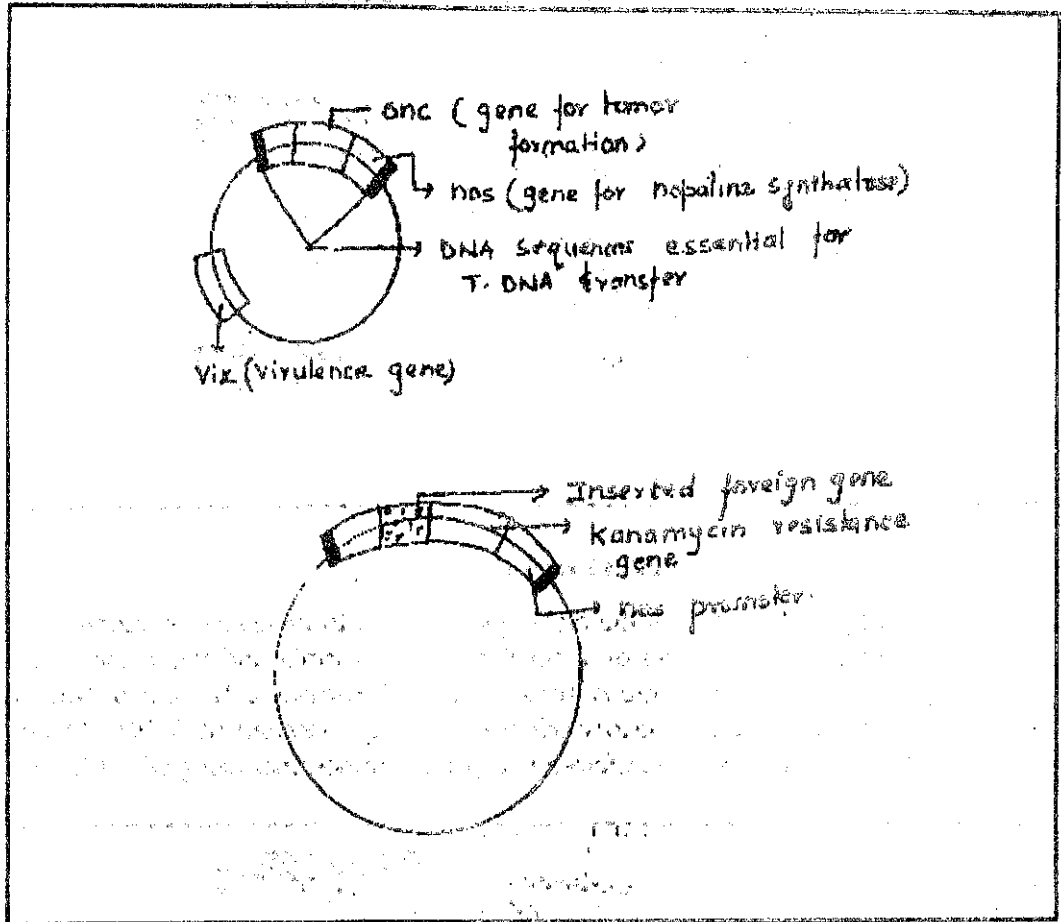 onc (gene for tumor
formation)
nos (gene for nopaline synthatase)
DNA sequences essential for
T. DNA transfer
Vir (virulence gene)
Inserted foreign gene
Kanamycin resistance
gene
nos promoter